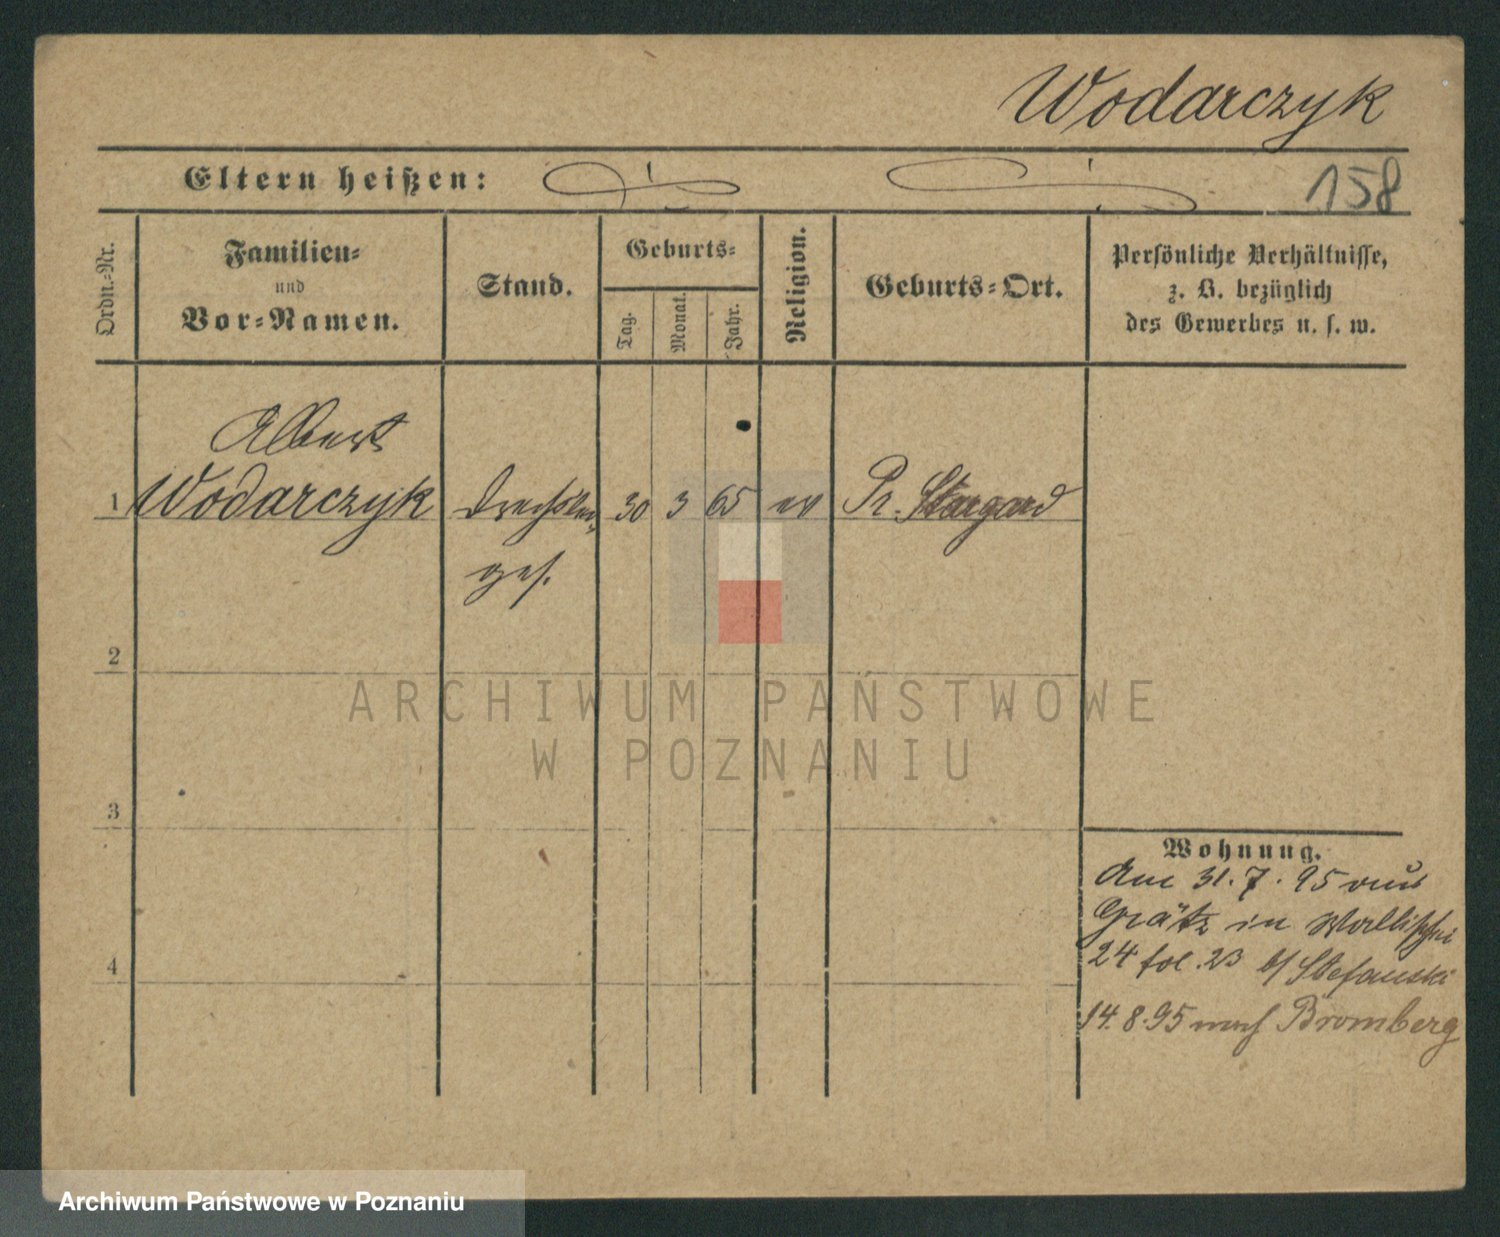 Wodarczyk
Eltern heißen:
158
Ordn.-Nr.
Familien-
und
Vor-Namen.
Stand.
Geburts-
Tag.
Monat.
Jahr.
Religion.
Geburts-Ort.
Persönliche Verhältnisse,
z. B. bezüglich
des Gewerbes u. s. w.
Albert
1 Wodarczyk Drechsler 30 3 65 ev Pr. Stargard
ges.
2
ARCHIWUM PAŃSTWOWE
W POZNANIU
3
Wohnung.
Am 31. 7. 95 aus
Grätz in Wallischei
24 fol. 23 b/ Stefanski
4
14. 8. 95 nach Bromberg
Archiwum Państwowe w Poznaniu